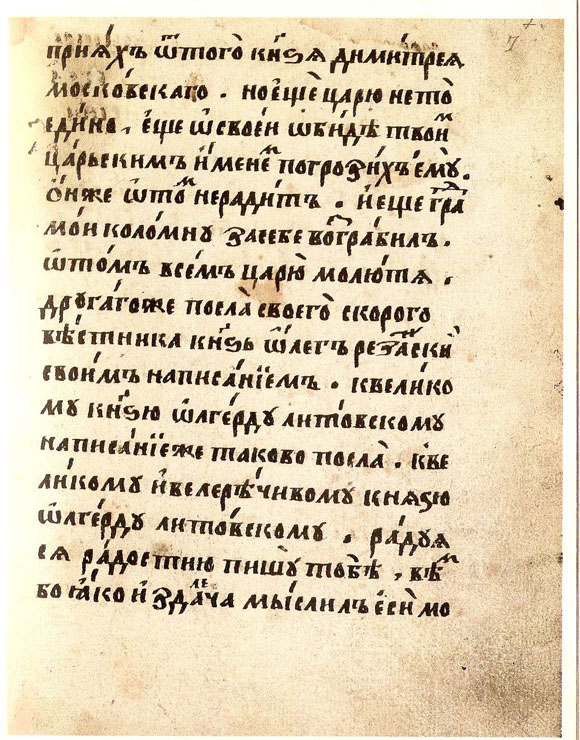 7
приѧ́хъ ѿтого̀ кн҃ѕя димитрея
моско́вскаго . но ещѐ царю нето̀
еди́но . е́ще ѡ҆свое́и ѡ҆би́дѣ твои́ⷨ
ца́рьскимъ и́менеⷨ погрози́хъ ему̀ .
о́нже ѡ҆тоⷨ неради́тъ . и еще граⷣ
мо́и коло́мну засебе во́гра́билъ .
ѡ҆то́мъ всемъ царю̀ молю́тя .
друга́гоже посла̀ своего̀ скорого
вѣ́стника кн҃ѕь ѡ҆легъ реза́нⷭски
свои́мъ написа́нїемъ . квели́ко
му кн҃ѕю ѡ҆лге́рду лито́вскому
написа́нїеже таково посла̀ . к̾ве
ли́кому и҆велерѣ́чивому княѕю
ѡ҆лге́рду лито́вскому . ра́дуя
ся ра́достию пишу̀ тобѣ̀ . вѣⷨ
бо ꙗ́ко и҆здале́ча мы́слилъ е҆сѝ мо